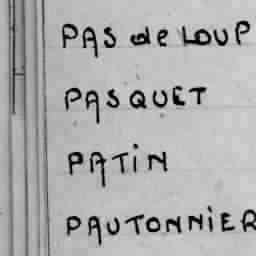 PAS de LOUP
PASQUET
PATiN
PAUTONNiER